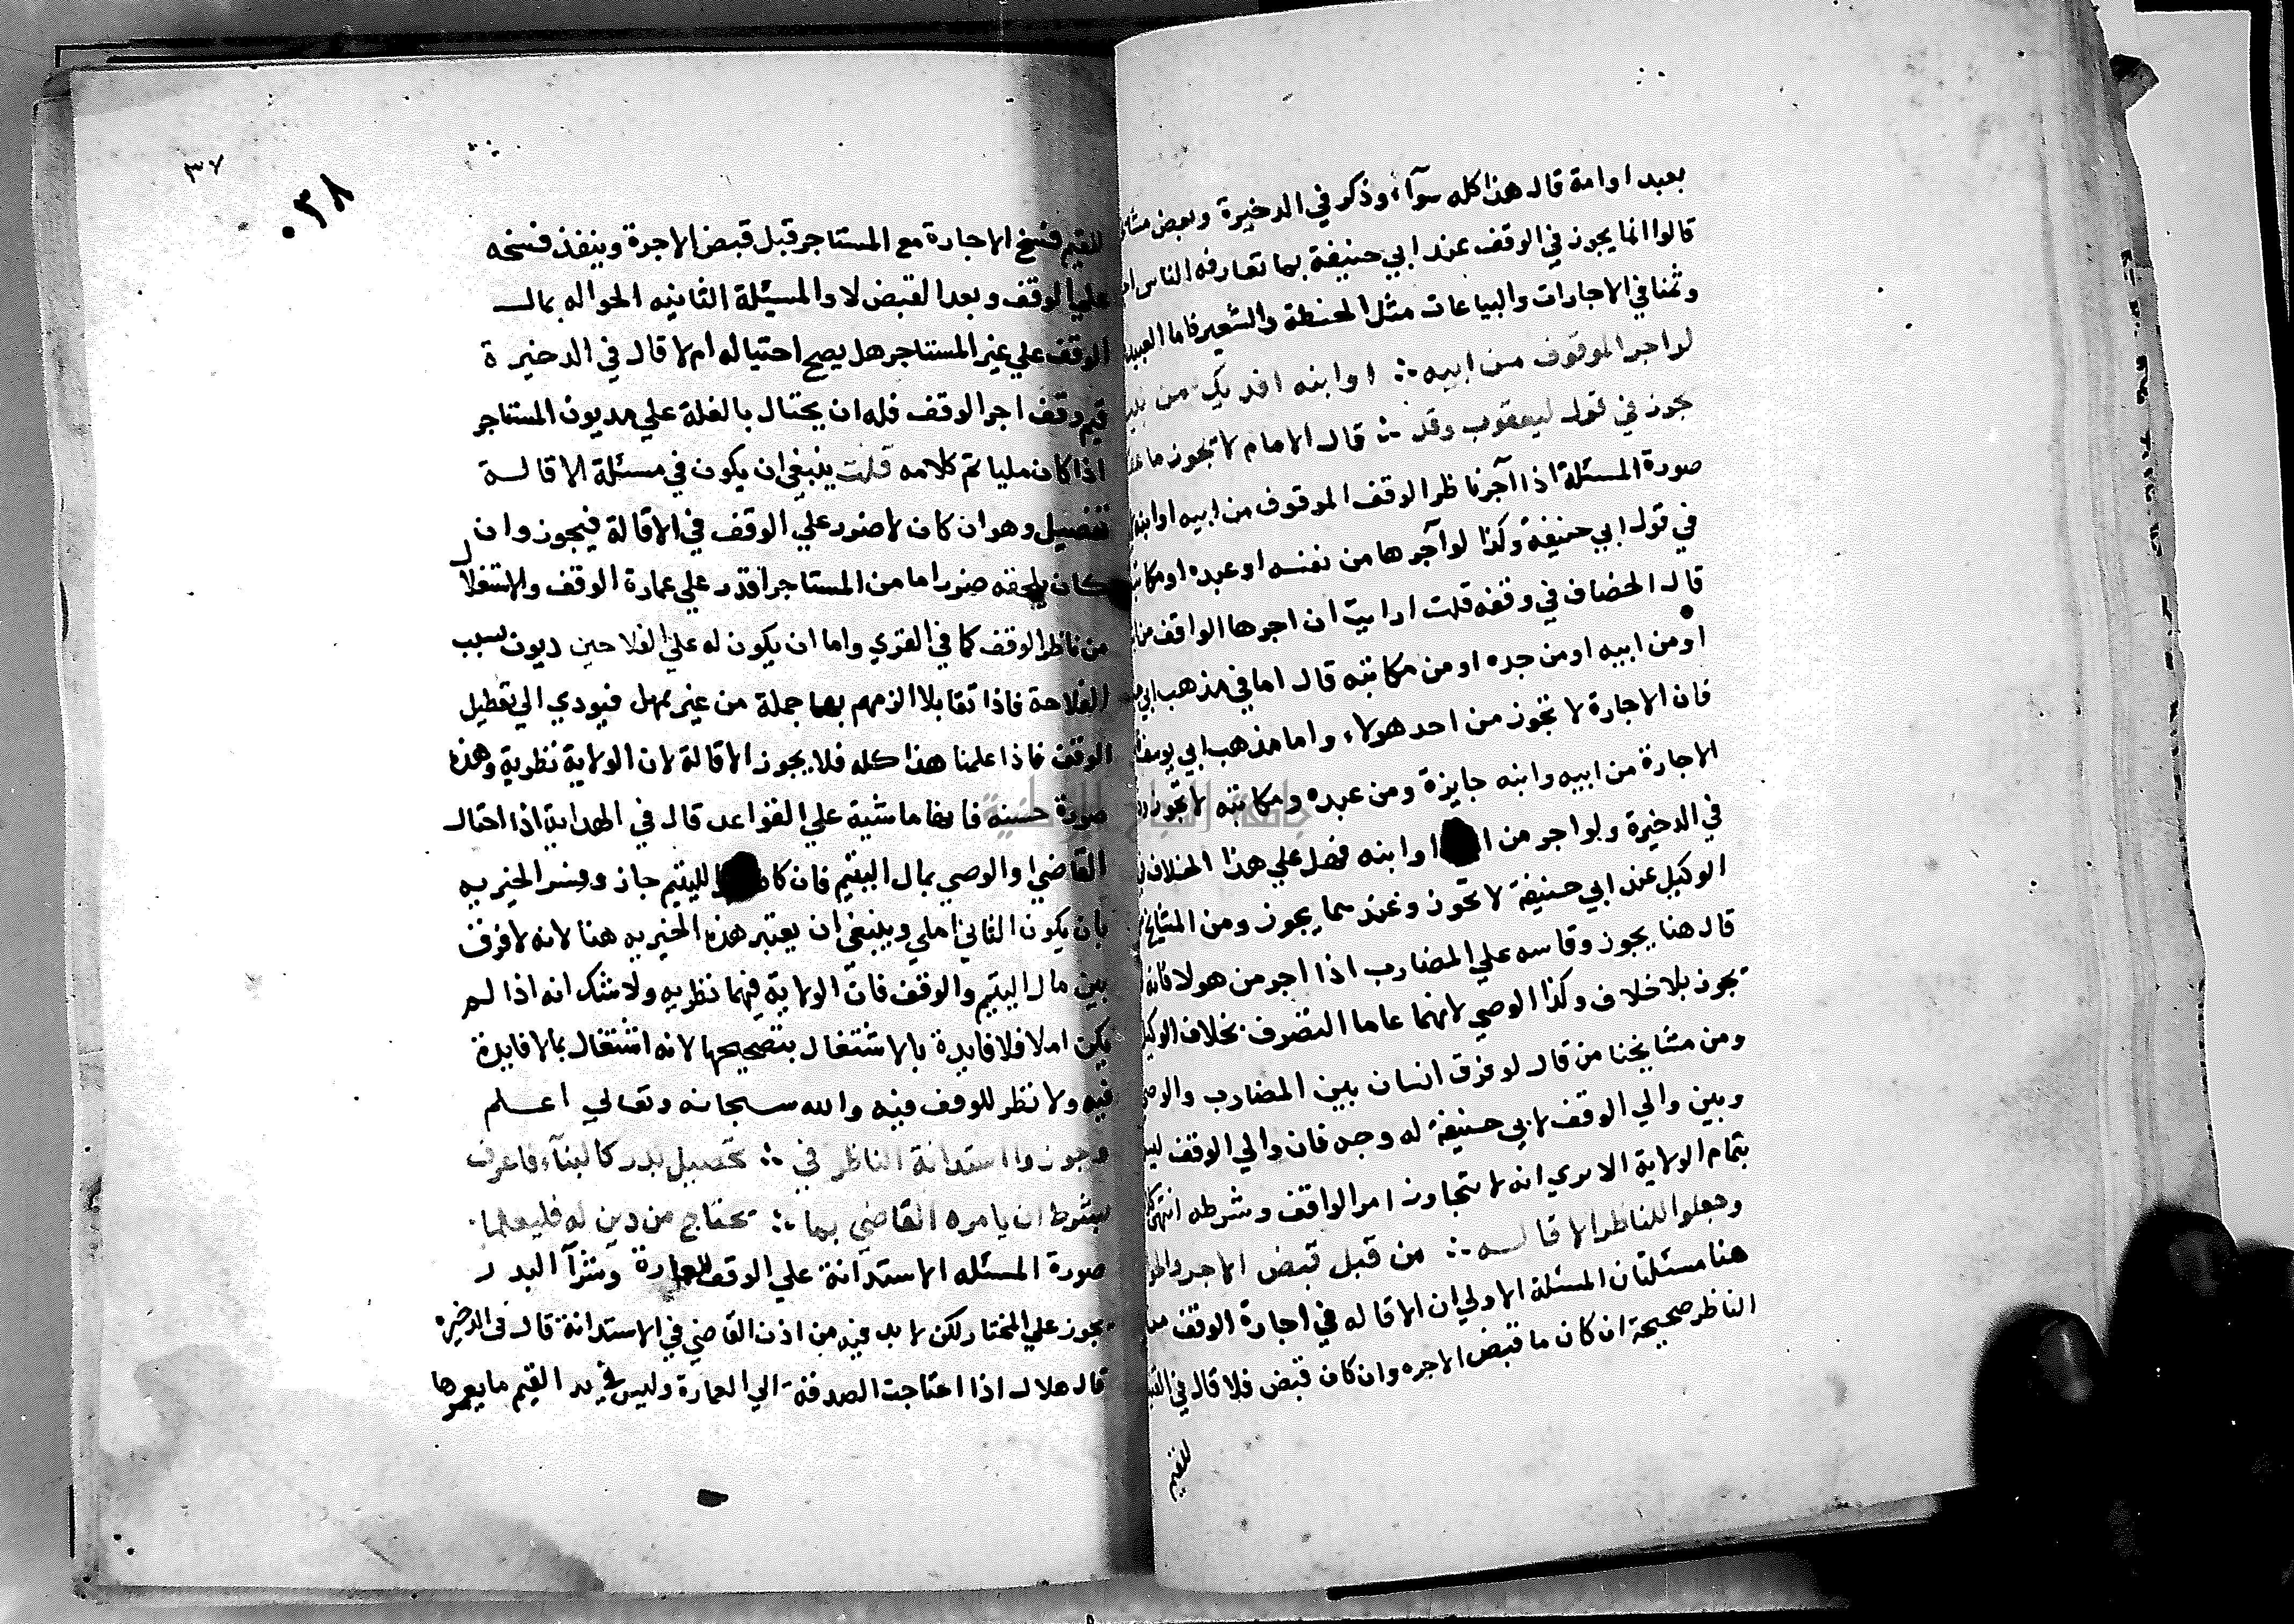 بعبد او امة قال هذا كله سوآء وذكر في الدخيرة وبعض
قالوا انما يجوز في الوقف عند ابي حنيفة بما تعارفه الناس
وثمنا في الاجارات والبياعات مثل الحنطة والشعير فاما العبيد
لو اجر الموقوف من ابيه ∴ او ابنه افديك من
جوز في قول ليعقوب وقد ∴ قال الامام لا تجوز ما
صورة المسئلة اذا آجر ناظر الوقف الموقوف من ابيه او ابنه
في قول ابي حنيفة وكذا لو آجرها من نفسه او عبده او مكاتبه
قال الخصاف في وقفه قلت ارايت ان اجرها الواقف من
او من ابيه او من جده او من مكاتبه قال اما في مذهب ابي
فان الاجارة لا تجوز من احد هولاء واما مذهب ابي يوسف
الاجارة من ابيه وابنه جايزة ومن عبده ومكاتبه لا تجوز
في الدخيرة ولو اجر من او ابنه فهل علي هذا الخلاف
الوكيل عند ابي حنيفة لا تجوز وعندهما يجوز ومن المشايخ
قال هنا يجوز وقاسه علي المضارب اذا اجر من هولا فانه
تجوز بلا خلاف وكذا الوصي لانهما عاما التصرف بخلاف الوكيل
ومن مشايخنا من قال لو فرق انسان بين المضارب والوصي
وبين والي الوقف لابي حنيفة له وجه فان والي الوقف ليس
بتمام الولاية الا يري انه لا يتجاوز امر الواقف وشرطه انتهي
وجعلوا للناظر الاقالـه ∴ من قبل قبض الاجر والحوا
هنا مسئلتان المسئلة الاولي ان الاقاله في اجارة الوقف من
الناظر صحيحة ان كان ما قبض الاجره وان كان قبض فلا قال في
للقيم
٣٧
٠٣٨
للقيم فسخ الاجارة مع المستاجر قبل قبض الاجرة وينفذ فسخه
علي الوقف وبعد القبض لا والمسئلة الثانيه الحواله بمالـ
الوقف علي غير المستاجر هل يصح احتياله ام لا قال في الدخيرة
قيم وقف اجر الوقف فله ان يحتال بالغلة علي مديون المستاجر
اذا كان مليا تم كلامه قلت ينبغي ان يكون في مسئلة الاقالـة
تفصيل وهو ان كان لا ضرر علي الوقف في الاقالة فيجوز وان
كان يلحقه ضررا ما من المستاجر اقدر علي عمارة الوقف والاستغلال
من ناظر الوقف كما في القري واما ان يكون له علي الفلاحين ديون بسبب
الفلاحة فاذا تقابلا الزمهم بها جملة من غير مهل فيودي الي تعطيل
الوقف فاذا علمنا هذا كله فلا يجوز الاقالة لان الولاية نظرية وهذه
صورة حسنه فانها ماشية علي القواعد قال في الهداية اذا احتال
القاضي او الوصي بمال اليتيم فان كان لليتيم جاز وفسر الخيريه
بان يكون الثاني املي وينبغي ان يعتبر هذه الخيريه هنا لانه لا فرق
بين مال اليتيم والوقف فان الولاية فيهما نظريه ولا شك انه اذا لم
يكن املا فلا فايدة بالاشتغال بتصحيحها لانه اشتغال بما لا فايدة
فيه ولا نظر للوقف فيه والله سبحانه وتعالي اعـلم
وجوزوا استدانة الناظر في ∴ تحصيل بدر كالبنآء فاعرف
بشرط ان يامره القاضي بما ∴ تحتاج من دين له فليعلما
صورة المسئله الاستدانة علي الوقف للعمارة وشرآ البدر
يجوز علي المختار لكن لا بد فيه من اذن القاضي في الاستدانة قال في الدخيره
قال هلال اذا احتاجت الصدقة الي العمارة وليس في يد القيم ما يعمرها